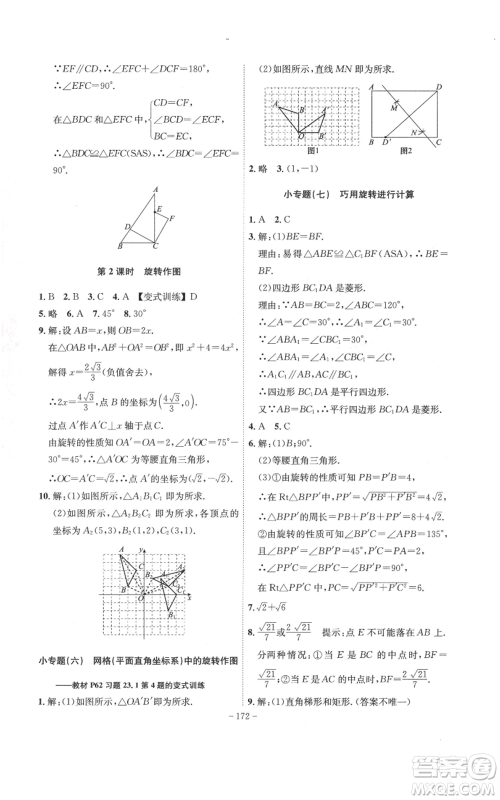 ∵EF∥CD,∴∠EFC+∠DCF=180°,
∴∠EFC=90°.
在△BDC和△EFC中,{CD=CF, ∠BCD=∠ECF, BC=EC,
∴△BDC≌△EFC(SAS),∴∠BDC=∠EFC=90°.
A
E
F
D
B
C
第2课时 旋转作图
1. B 2. B 3. C 4. A 【变式训练】D
5. 略 6. A 7. 45° 8. 30°
9. 解:设AB=x,则OB=2x.
在△OAB中,AB²+OA²=OB²,即x²+4=4x²,
解得x=2√3/3(负值舍去);
∴2x=4√3/3,点B的坐标为(4√3/3,0).
过点A′作A′C⊥x轴于点C.
由旋转的性质知OA′=OA=2,∠A′OC=15°+
30°=45°,∴△OA′C为等腰直角三角形,
∴OC=A′C=√2,∴A′(√2,√2).
10. 解:(1)如图所示,△A₁B₁C₁即为所求.
(2)如图所示,△A₂B₂C₂即为所求,各顶点的
坐标为A₂(5,3),B₂(1,2),C₂(3,1).
小专题(六) 网格(平面直角坐标系)中的旋转作图
——教材P62习题23.1第4题的变式训练
1. 解:(1)如图所示,△OA′B′即为所求.
(2)如图所示,直线MN即为所求.
图1
图2
2. 略 3. (1,-1)
小专题(七) 巧用旋转进行计算
1. A 2. C
3. 解:(1)BE=BF.
理由:易得△ABE≌△C₁BF(ASA),
∴BE=BF.
(2)四边形BC₁DA为菱形.
理由:∵∠ABA₁=∠A₁=30°,
∴∠A=∠C₁=30°,
∴A₁C₁∥AB,AC∥BC₁,
∴四边形BC₁DA为平行四边形.
又∵AB=BC₁,
∴四边形BC₁DA为菱形.
4. A 5. A
6. 解:(1)B;90°.
(2)等腰直角三角形.
(3)①由旋转的性质可知PB=P′B=2,
∴在Rt△PBP′中,PP′=√PB²+P′B²=2√2,
∴△BPP′的周长=PP′+PB+P′B=2√2+4.
②由旋转的性质可知PA=P′C=2.
∵在△BPP′中,∠BP′P=45°,∠BP′C=135°,
∴∠PP′C=∠BP′C-∠BP′P=90°,
∴在Rt△PP′C中,PC=√PP′²+P′C²=6.
7. √2+√6
8. √21/7或√21/2 提示:分类讨论,当点A是BC的
中点时,当点B是AC的中点时,当点C是AB的
中点时,分别求解即可.
9. 解:(1)直角梯形和矩形.(答案不唯一)
- 172 -